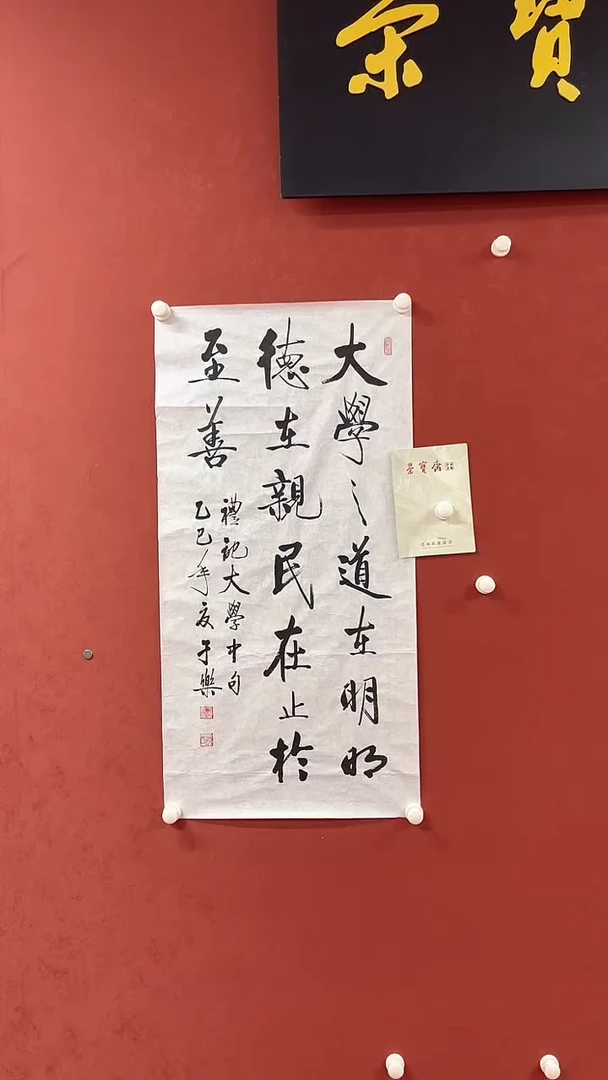 榮寶
大學之道在明明
德在親民在止於
至善
禮記大學中句
乙巳年夏于樂
榮寶齋